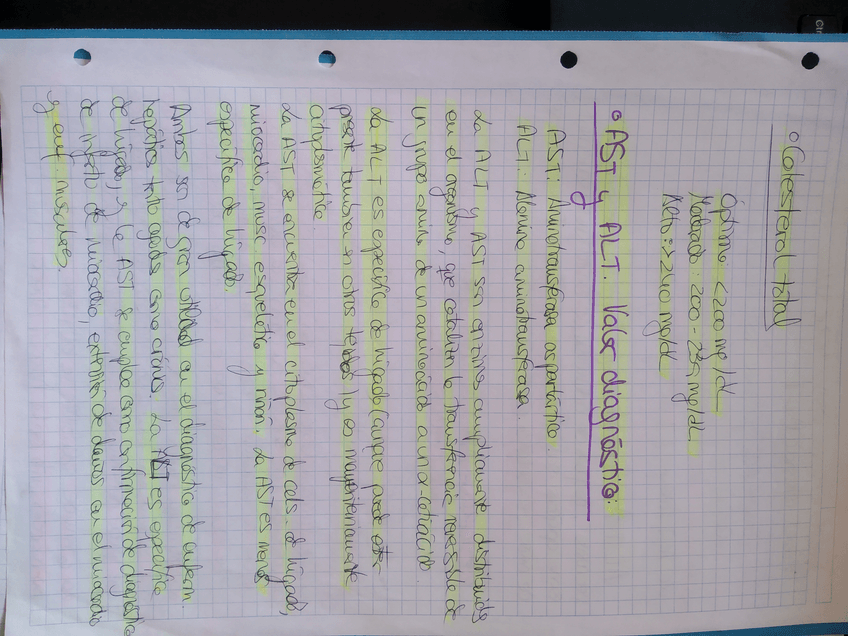 ° Colesterol total
Óptimo: <200 mg/dL
Moderado: 200-239 mg/dL
Alto: >240 mg/dL
° AST y ALT. Valor diagnóstico:
AST: Aminotransferasa aspartártica.
ALT: Alanina aminotransferasa.
La ALT y AST son enzimas ampliamente distribuidas
en el organismo, que catalizan la transferencia reversible de
un grupo amino de un aminoácido a un α-cetoácido.
La ALT es específica de hígado (aunque puede estar
presente también en otros tejidos) y es mayoritariamente
citoplasmática.
La AST se encuentra en el citoplasma de cels. de hígado,
miocardio, musc. esquelético y riñón. La AST es menos
específica de hígado.
Ambas son de gran utilidad en el diagnóstico de enferm.
hepáticas tanto agudas como crónicas. La ALT es específica
de hígado, y la AST se emplea como confirmación de diagnóstico
de infarto de miocardio, extensión de daños en el miocardio
y enf. musculares.